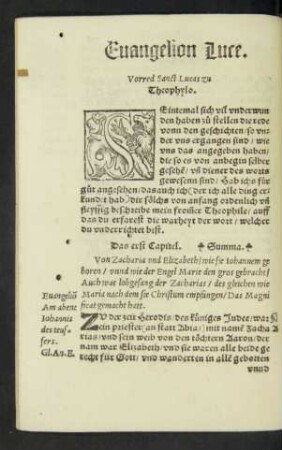 Euangelion Luce.
Vorred Sanct Lucas zu
Theophylo.
SEintemal sich vil vnderwun
den haben zů stellen die rede
vonn den geschichten so vn
der vns ergangen sind / wie
vns das angegeben haben /
die so es von anbegin selber
gesehē / vn̄ diener des worts
gewesenn sind / Hab ichs für
gůt angesehen / das auch ich / der ich alle ding er
kundet hab / die sölchs von anfang ordenlich vn̄
fleyssig bschreibe mein frommer Theophile / auff
dan du erfarest die warheyt der wort / welcher
du vnderrichtet bist.
Das erst Capitel. Summa.
Von Zacharia vnd Elizabeth / wie sie Iohannem ge
boren / vnnd wie der Engel Marie den gros gebracht /
Auch was lobgesang der Zacharias / des gleichen wie
Maria nach dem sie Christum empfangen / Das Magni
ficat gemacht hatt.
Euangeliū
Am abent
Iohannis
des teuf-
fers.
Gl.An.E.
ZV der zeit Herodis / des küniges Judee / war
ein priester / an statt Abia / mit namē Zacha
rias / vnd sein weib von den töchtern Aaron / der
nam war Elizabeth / vnd sie waren alle beide ge
recht für Gott / vnd wanderten in allē gebotten
vnnd